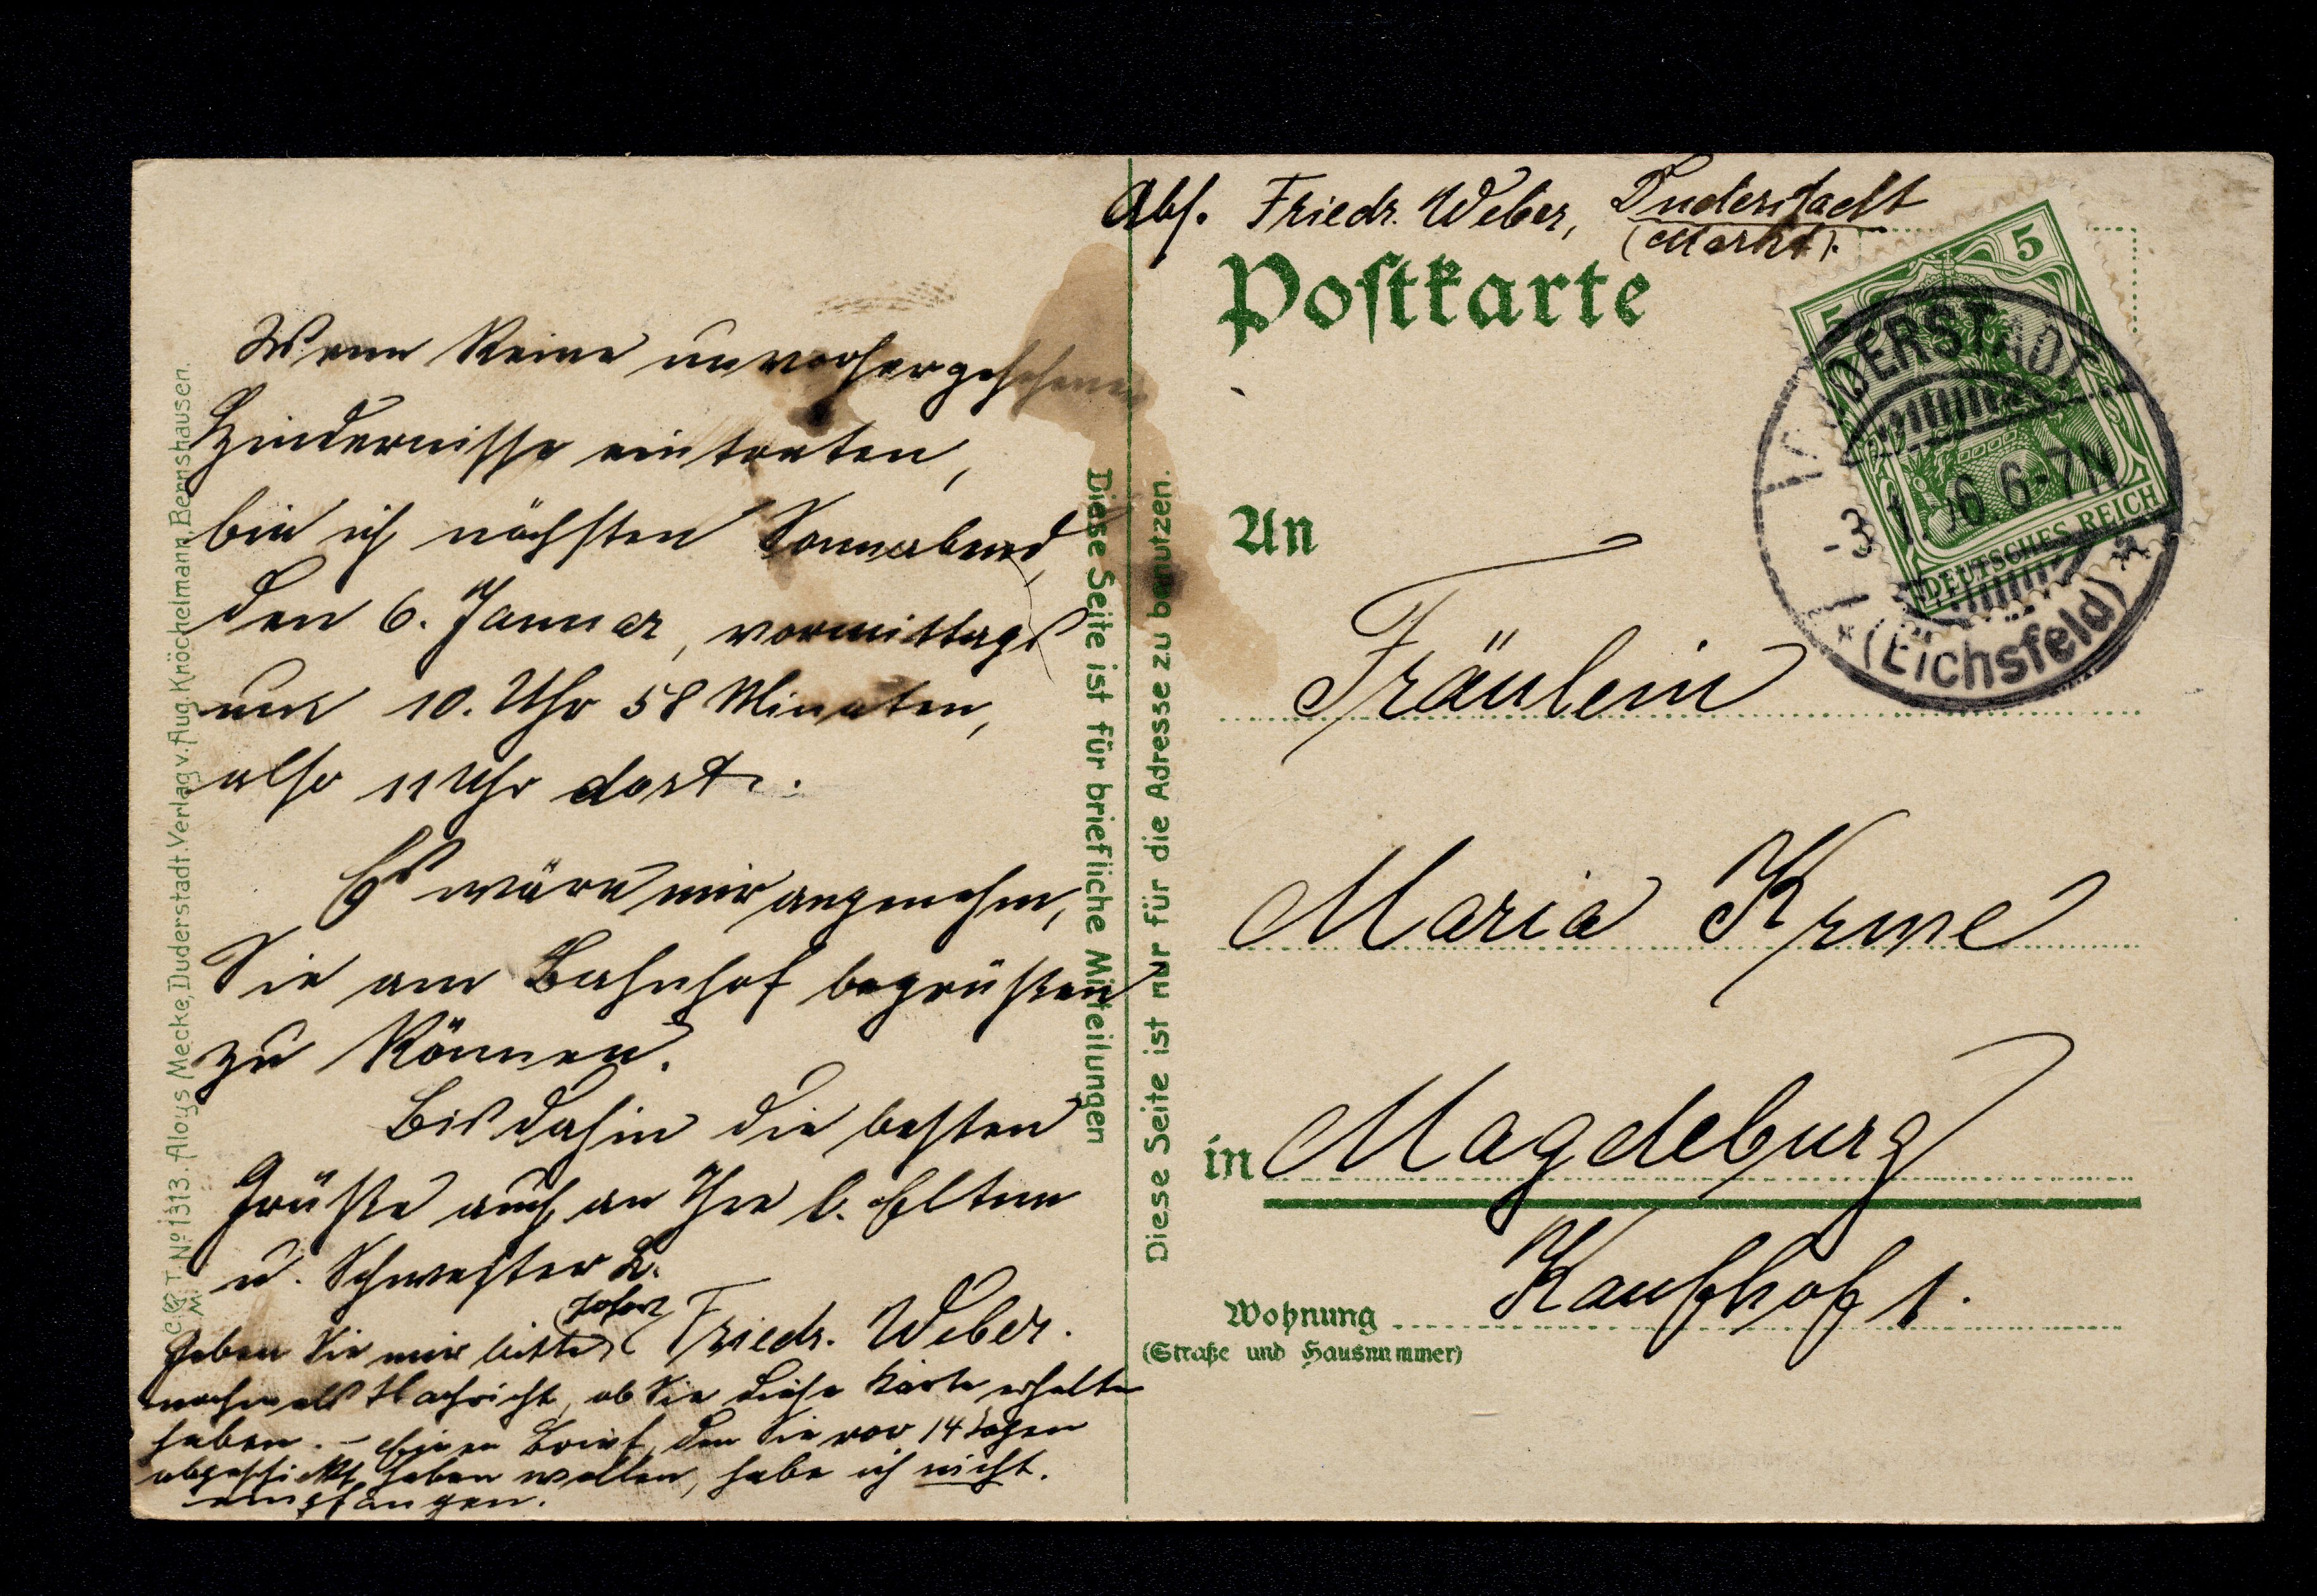 Wenn keine unvorhergesehenen
Hindernisse eintreten,
bin ich nächsten Sonnabend,
den 6. Januar, vormittags
um 10. Uhr 58 Minuten,
also 11 Uhr dort.
Es wäre mir angenehm,
Sie am Bahnhof begrüßen
zu können.
Bis dahin die besten
Grüße auch an Ihre l. Eltern
u. Schwester L.
Friedr. Weber.
Geben Sie mir bitte sofort
nochmals Nachricht, ob Sie diese Karte erhalten
haben. – Einen Brief, den Sie vor 14 Tagen
abgeschickt haben wollen, habe ich nicht
empfangen.
C. T. No 1313. Aloys Mecke, Duderstadt. Verlag v. Aug. Knöchelmann, Bernshausen.
Diese Seite ist für briefliche Mitteilungen
Diese Seite ist nur für die Adresse zu benutzen.
Abs. Friedr. Weber, Duderstadt
(Markt).
Postkarte
5 5
DUDERSTADT
-3.1.06 6-7N
DEUTSCHES REICH
*(Eichsfeld)*
An
Fräulein
Maria
in Magdeburg
Kaufhof 1.
Wohnung
(Straße und Hausnummer)